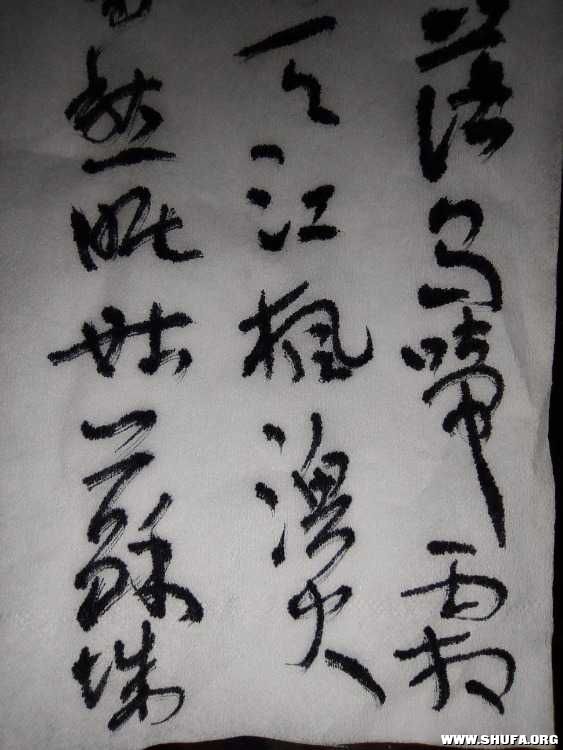 落烏啼霜
天江楓漁火
愁眠姑蘇城
WWW.SHUFA.ORG